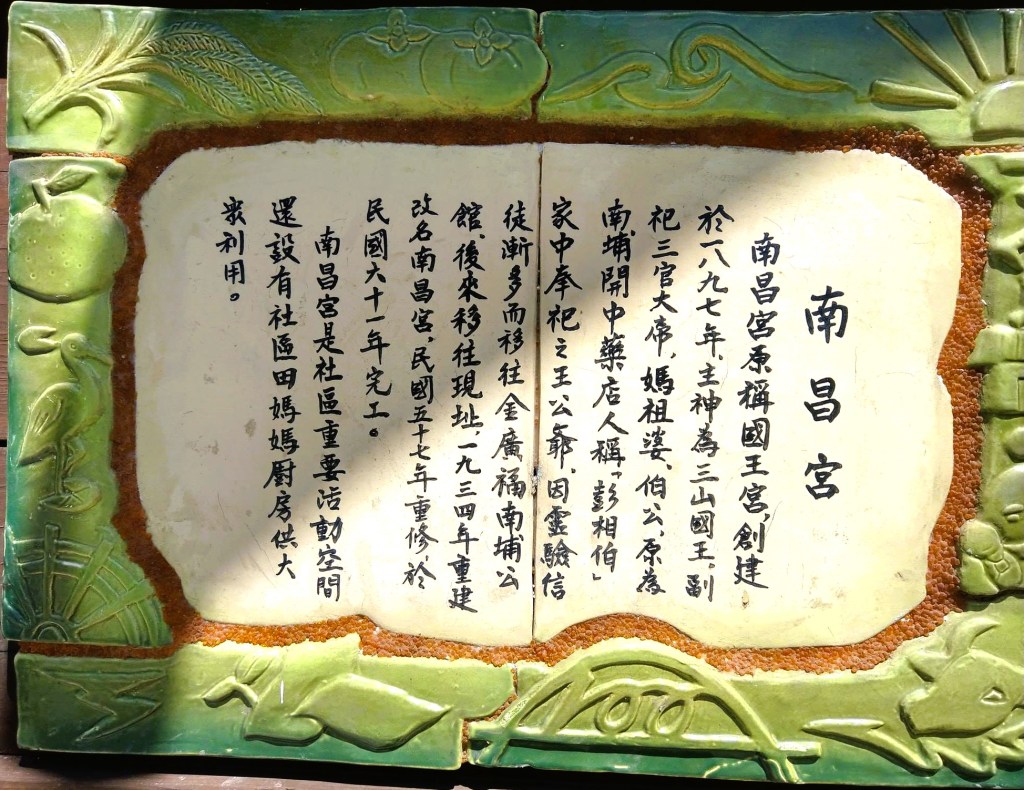 南昌宮
南昌宮原稱國王宮創建
於一八九七年,主神為三山國王。副
祀三官大帝,媽祖婆、伯公,原為
南埔開中藥店人稱「彭相伯」
家中奉祀之王公爺,因靈驗信
徒漸多而移往金廣福南埔公
館、後來移往現址,一九三四年重建
改名南昌宮,民國五十七年重修,於
民國六十一年完工。
南昌宮是社區重要活動空間
還設有社區田媽媽廚房供大
衆利用。